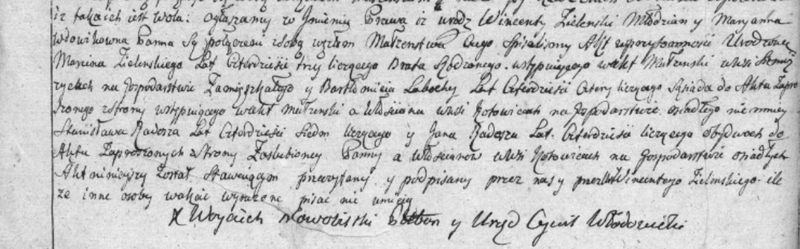 iż takaich iest wola: ogłaszamy w Imieniu Prawa iż urodz Wincenty Zielenski Młodzian y Maryanna
wdowikowna Panna są połączeni z sobą węzłem Małżenstwa Czego spisalismy Akt w przytomności Urodzonego
Marcina Zielenskiego Lat Czterdzieście trzy liczącego Brata Rodzonego wstępującego w akt Małżenski w wsi
zyckich na Gospodarstwie Zamieszkałego y Bartłomieia Labochy Lat Czterdzieści Cztery liczącego Sąsiada do Aktu Zapro
szonego z strony wstępuiącego w akt Małżenski a Włościana w wsi Kotowicach na Gospodarstwie osiadłego niemniey
Stanisława Kadorza Lat Czterdzieści Siedm liczącego y Jana Kadorza Lat Czterdzieści liczącego obydwoch do
Aktu Zaproszonych z strony Zaslubioney Panny a Włościanow w wsi Kotowicach na Gospodarstwie osiadłych
Akt ninieyszy został Stawaiącym przeczytany y podpisany przez nas y przez Wincentego Zielenskiego ile
że inne osoby w akcie wyrażone pisać nie umieią
X Woyciech Nowolitski y Urzęd Cywil Włodowicki